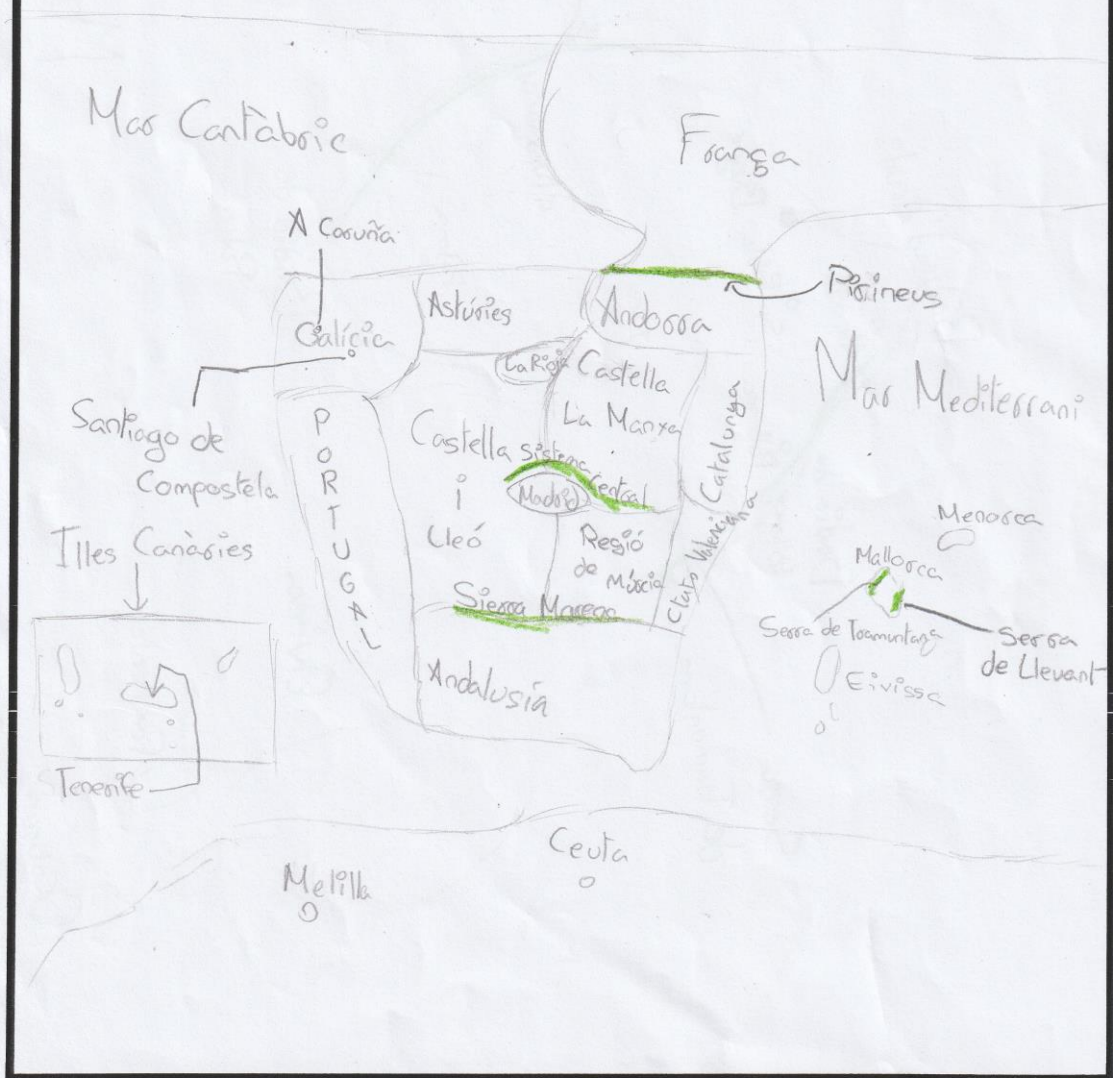 Mar Cantàbric
França
A Coruña
Pirineus
Astúries
Andorra
Galícia
La Rioja
Castella
La Manxa
Mar Mediterrani
Santiago de
Compostela
PORTUGAL
Castella
i
Lleó
Sistema
Central
Madrid
Catalunya
Illes Canàries
Regió
de Múrcia
Valenciana
Menorca
Mallorca
Sierra Morena
Serra de Tramuntana
Serra
de Llevant
Eivissa
Andalusía
Tenerife
Ceuta
Melilla